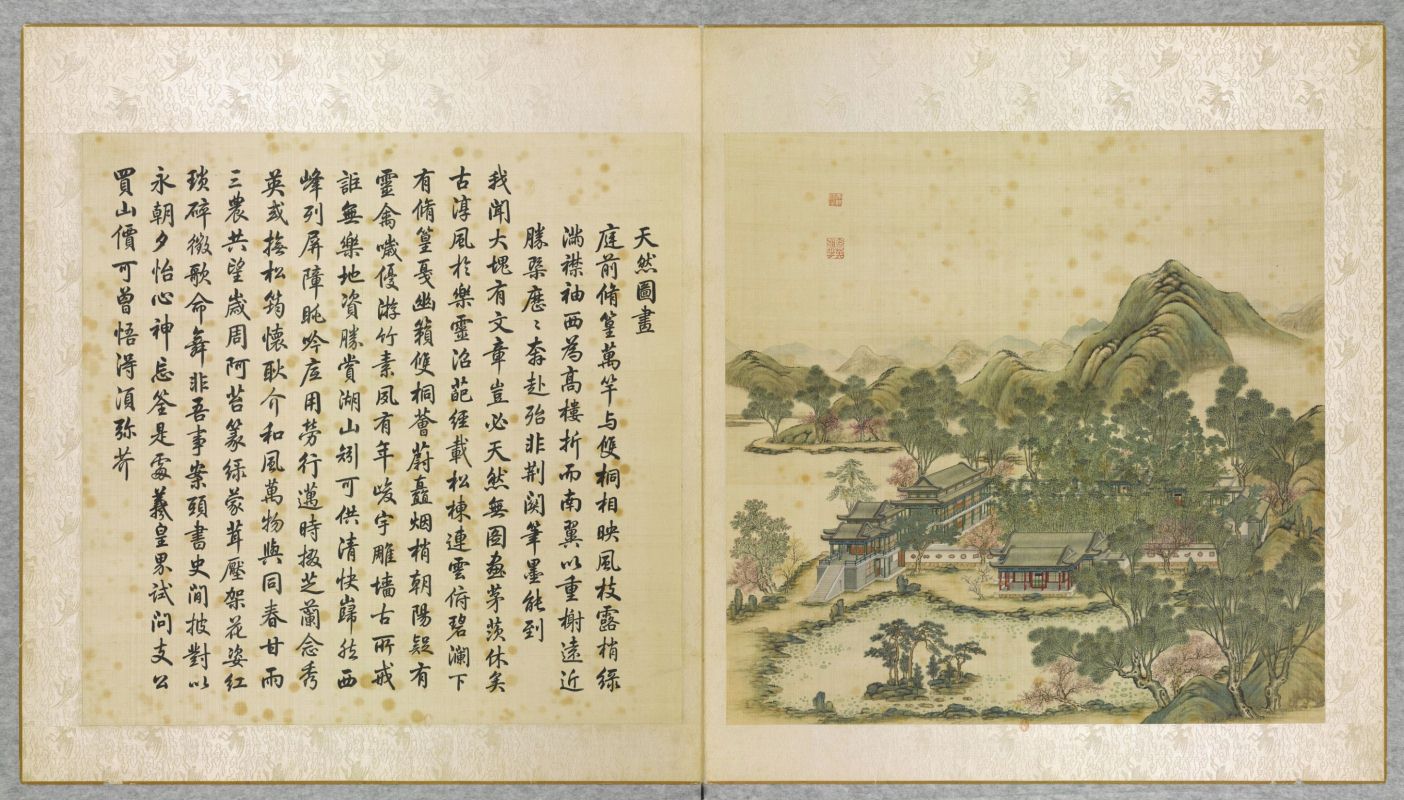 天然圖畫
庭前脩篁萬竿与雙桐相映風枝露梢綠
滿襟袖西為高樓折而南翼以重榭遠近
勝槩歷〻奔赴殆非荆関筆墨能到
我聞大塊有文章豈必天然無圖畫茅茨休矣
古淳風於樂靈沼葩經載松棟連雲俯碧瀾下
有脩篁戛幽籟雙桐薈蔚矗烟梢朝陽疑有
靈禽噦優游竹素夙有年峻宇雕墻古所戒
詎無樂地資勝賞湖山矧可供清快巋然西
峰列屏障眺吟底用勞行邁時掇芝蘭念秀
英或撫松筠懷耿介和風萬物與同春甘雨
三農共望歲周阿苔篆綠蒙茸壓架花姿紅
瑣碎徵歌命舞非吾事案頭書史閒披對以
永朝夕怡心神忘筌是處羲皇界試問支公
買山價可曾悟淂湏弥芥